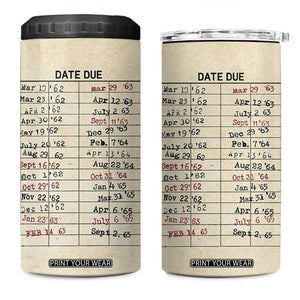 DATE DUE
Mar 10 '62 mar 29 '63
Mar 23 '62 Apr 12 '63
'62 July 2 '63
Apr 30 '62 Sept 11 '63
May 19 '62 Dec 29 '63
July 20 '62 Feb. 7 '64
Aug 29 '62 Apr 13 '64
Sept 16 '62 Aug 22 '64
Oct 1 '62 Oct 31 '64
Oct 29 '62 Jan 4 '65
Nov 22 '62 Mar 31 '65
Dec 12 '62 Apr 6 '65
Jan 23 '63 July 6 '65
FEB 14 '63 Sept 2. 65
PRINT YOUR WEAR
DATE DUE
Mar 10 '62 mar 29 '63
Mar 23 '62 Apr 12 '63
'62 July 2 '63
Apr 30 '62 Sept 11 '63
May 19 '62 Dec 29 '63
July 20 '62 Feb. 7 '64
Aug 29 '62 Apr 13 '64
Sept 16 '62 Aug 22 '64
Oct 1 '62 Oct 31 '64
Oct 29 '62 Jan 4 '65
Nov 22 '62 Mar 31 '65
Dec 12 '62 Apr 6 '65
Jan 23 '63 July 6 '65
FEB 14 '63 Sept 2. 65
PRINT YOUR WEAR